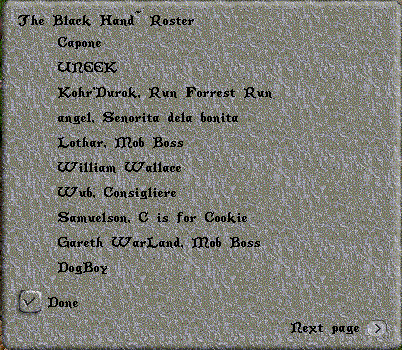 The Black Hand~ Roster
Capone
UNEEK
Kohr'Durok, Run Forrest Run
angel, Senorita dela bonita
Lothar, Mob Boss
William Wallace
Wub, Consigliere
Samuelson, C is for Cookie
Gareth WarLand, Mob Boss
DogBoy
Done
Next page